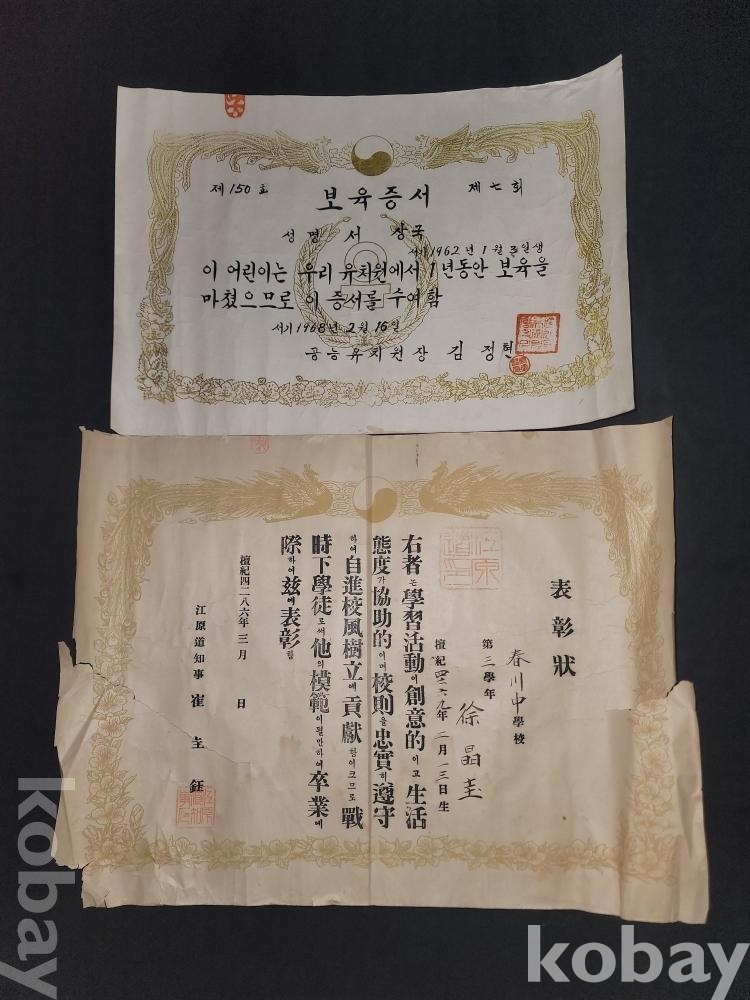 제 150 호
보육증서
제 七 회
성명 서 상국
서기 1962년 1월 3일생
이 어린이는 우리 유치원에서 1년동안 보육을
마쳤으므로 이 증서를 수여함
서기 1968년 2월 16일
공능유치원장 김정현
表彰狀
春川中學校
第三學年
徐晶圭
檀紀四二六九年 二月一三日生
右者는學習活動이創意的이고生活
態度가協助的이며校則을忠實히遵守
하여自進校風樹立에貢獻함이크므로戰
時下學徒로써他의模範이될만하여卒業에
際하여玆에表彰함
檀紀四二八六年三月 日
江原道知事 崔圭鈺
kobay
kobay
kobay